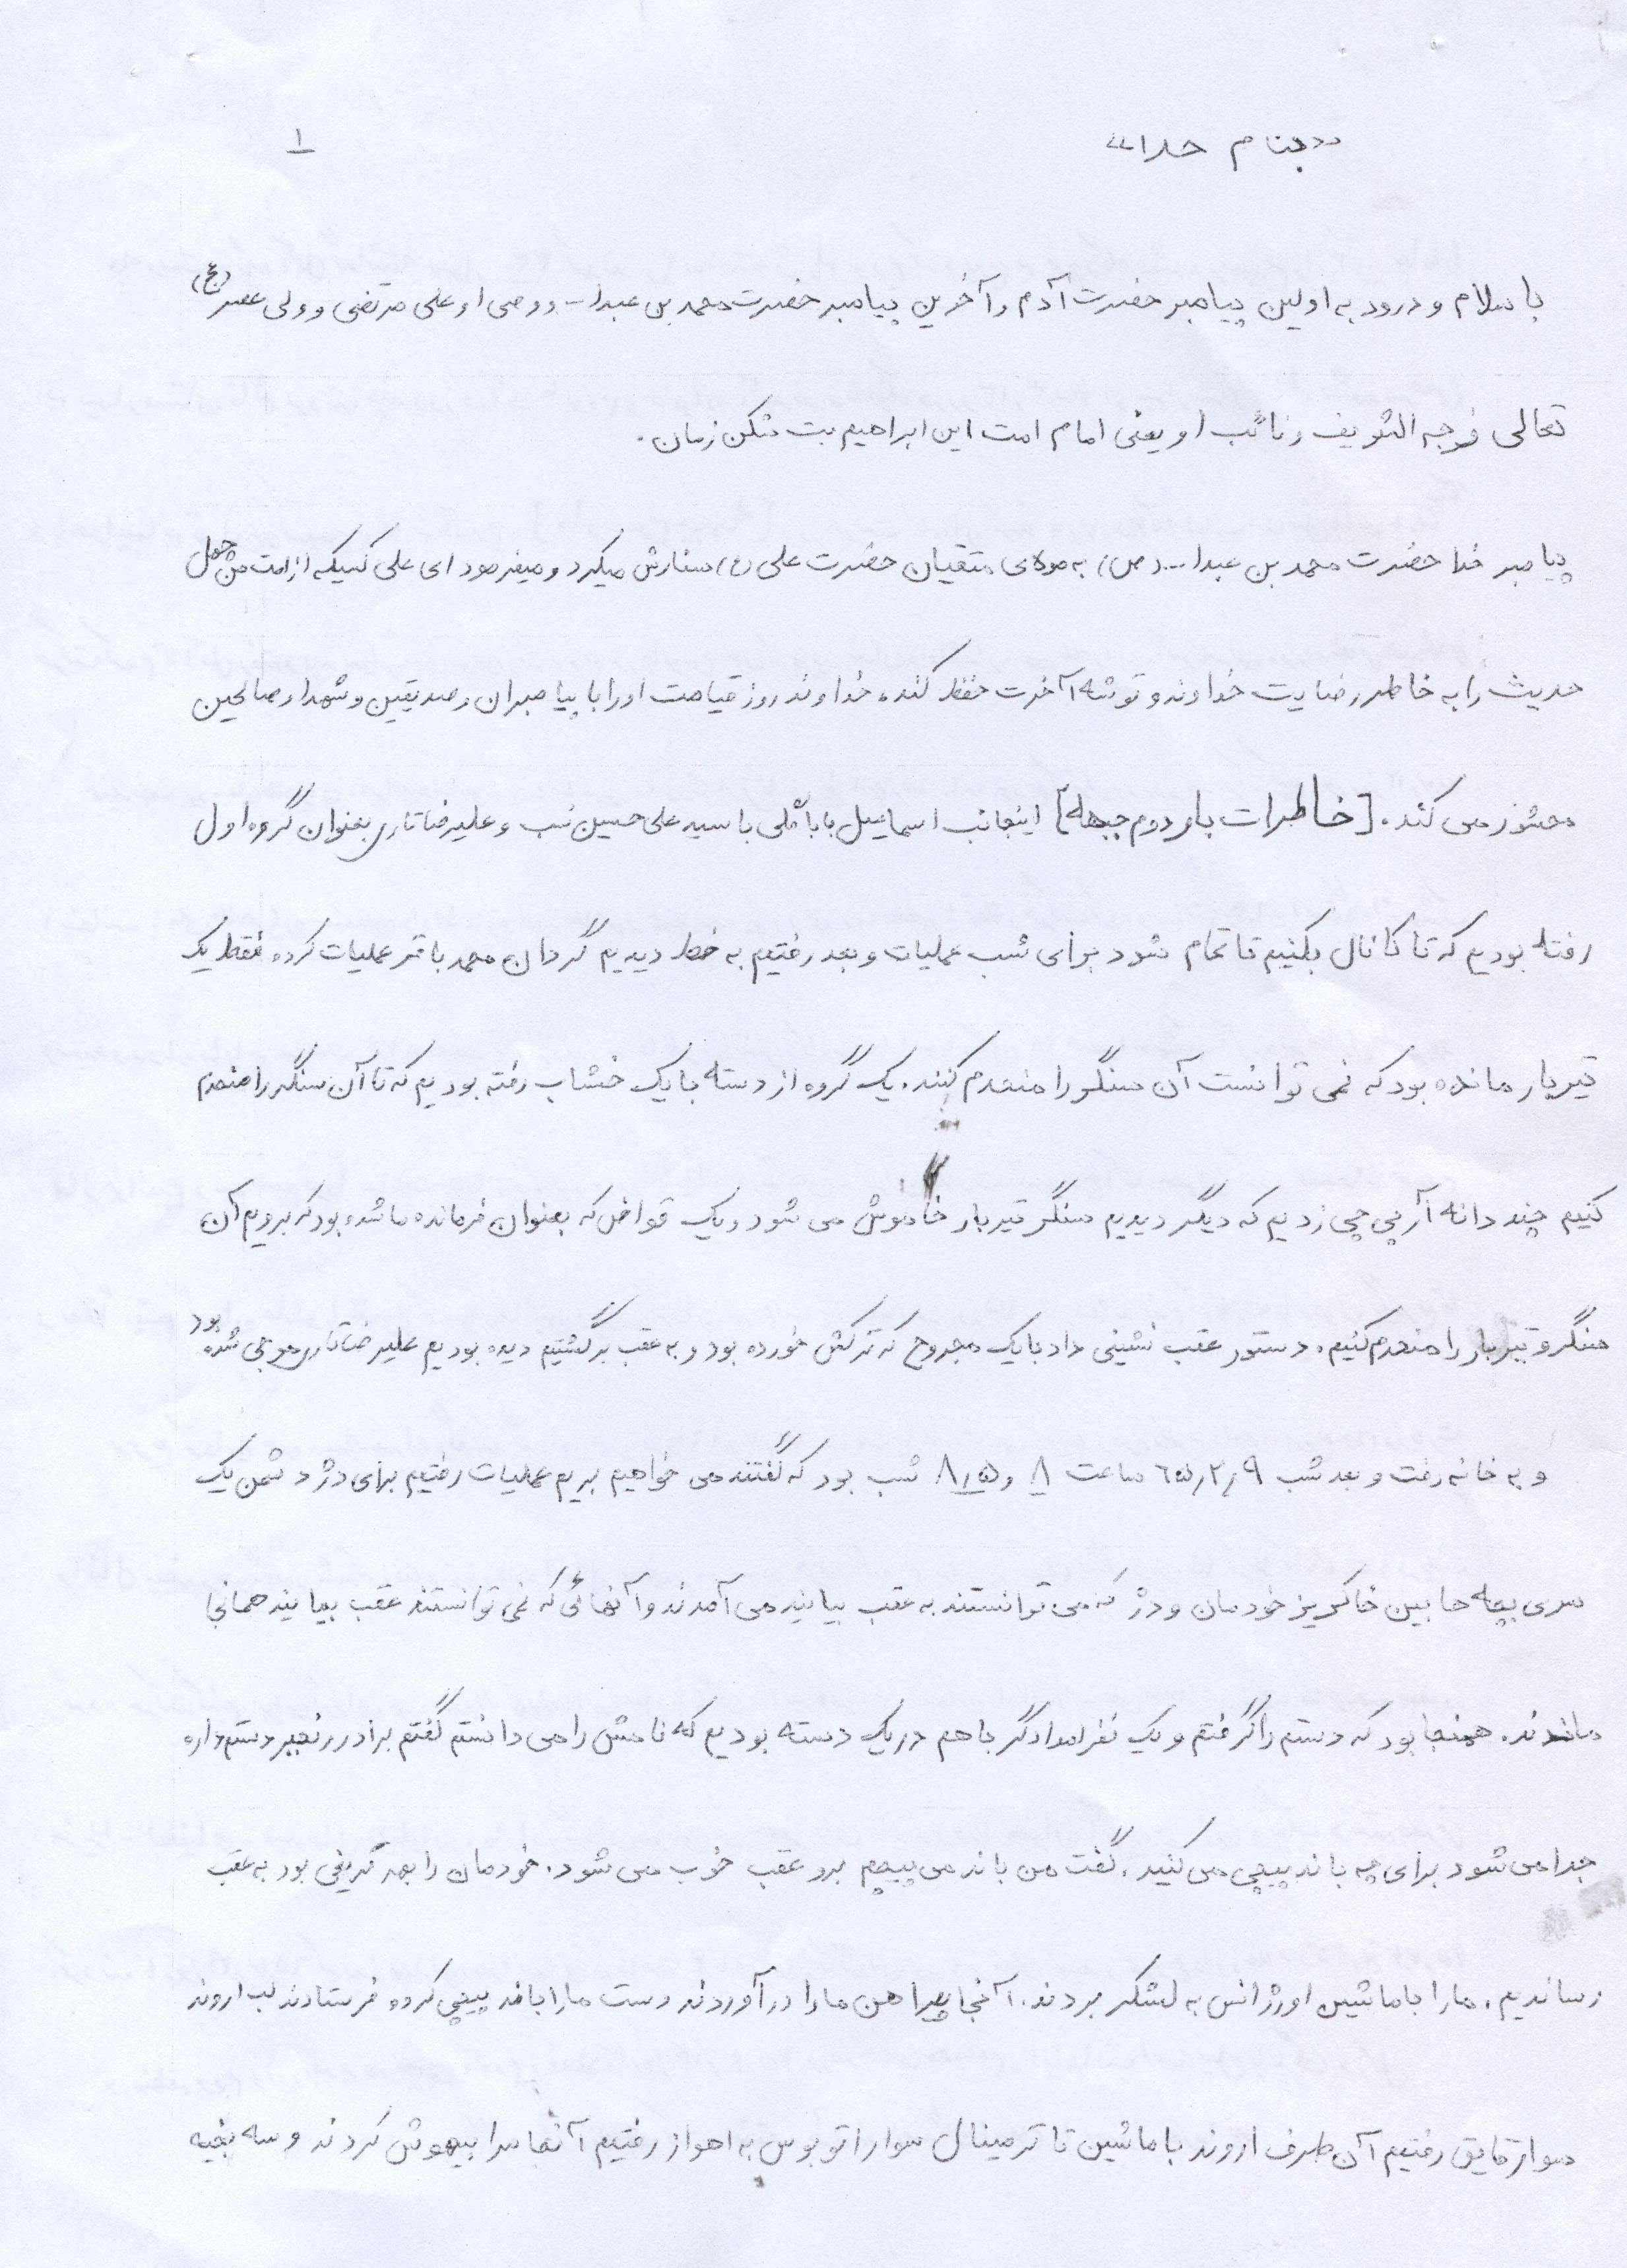 «بنام خدا» ۱
با سلام و درود به اولین پیامبر حضرت آدم و آخرین پیامبر حضرت محمد بن عبدا... و وصی او علی مرتضی و ولی عصر (عج)
تعالی فرجه الشریف و نائب او یعنی امام امت این ابراهیم بت شکن زمان.
پیامبر خدا حضرت محمد بن عبدا...(ص) به مولای متقیان حضرت علی (ع) سفارش میکرد و میفرمود ای علی کسیکه از امت من چهل
حدیث را به خاطر رضایت خداوند و توشه آخرت حفظ کند. خداوند روز قیامت او را با پیامبران و صدیقین و شهدا و صالحین
محشور می کند. [خاطرات بار دوم جبهه] اینجانب اسماعیل بابائلی با سید علی حسین نسب و علیرضا تاری بعنوان گروه اول
رفته بودیم که تا کانال بکنیم تا تمام شود برای شب عملیات و بعد رفتیم به خط دیدیم گردان محمد باقر عملیات کرده فقط یک
تیربار مانده بود که نمی توانست آن سنگر را منهدم کنند. یک گروه از دسته با یک خشاب رفته بودیم که تا آن سنگر را منهدم
کنیم چند دانه آرپی چی زدیم که دیگر دیدیم سنگر تیربار خاموش می شود و یک قواص که بعنوان فرمانده ما شده بود که برویم آن
سنگر و تیربار را منهدم کنیم. دستور عقب نشینی داد با یک مجروح که ترکش خورده بود و به عقب برگشتیم دیده بودیم علیرضا تاری موجی شده بود
و به خانه رفت و بعد شب ۶۵٫۲٫۹ ساعت ۸ و ۸٫۵ شب بود که گفتند می خواهیم بریم عملیات رفتیم برای دژ دشمن یک
سری بچه ها بین خاکریز خودمان و دژ که می توانستند به عقب بیایند می آمدند و آنهائی که نمی توانستند عقب بیایند همانجا
ماندند. همنجا بود که دستم را گرفتم و یک نفر امدادگر با هم در یک دسته بودیم که نامش را می دانستم گفتم برادر رنجبر دستم داره
جدا می شود برای چه باند پیچی می کنید. گفت من باند می پیچم برو عقب خوب می شود. خودمان را بهر تریفی بود به عقب
رساندیم. ما را با ماشین اورژانس به لشگر بردند. آنجا پیراهن ما را در آوردند دست ما را باند پیچی کرده فرستادند لب اروند
سوار قایق رفتیم آن طرف اروند با ماشین تا ترمینال سوار اتوبوس به اهواز رفتیم آنجا مرا بیهوش کردند و سه بخیه